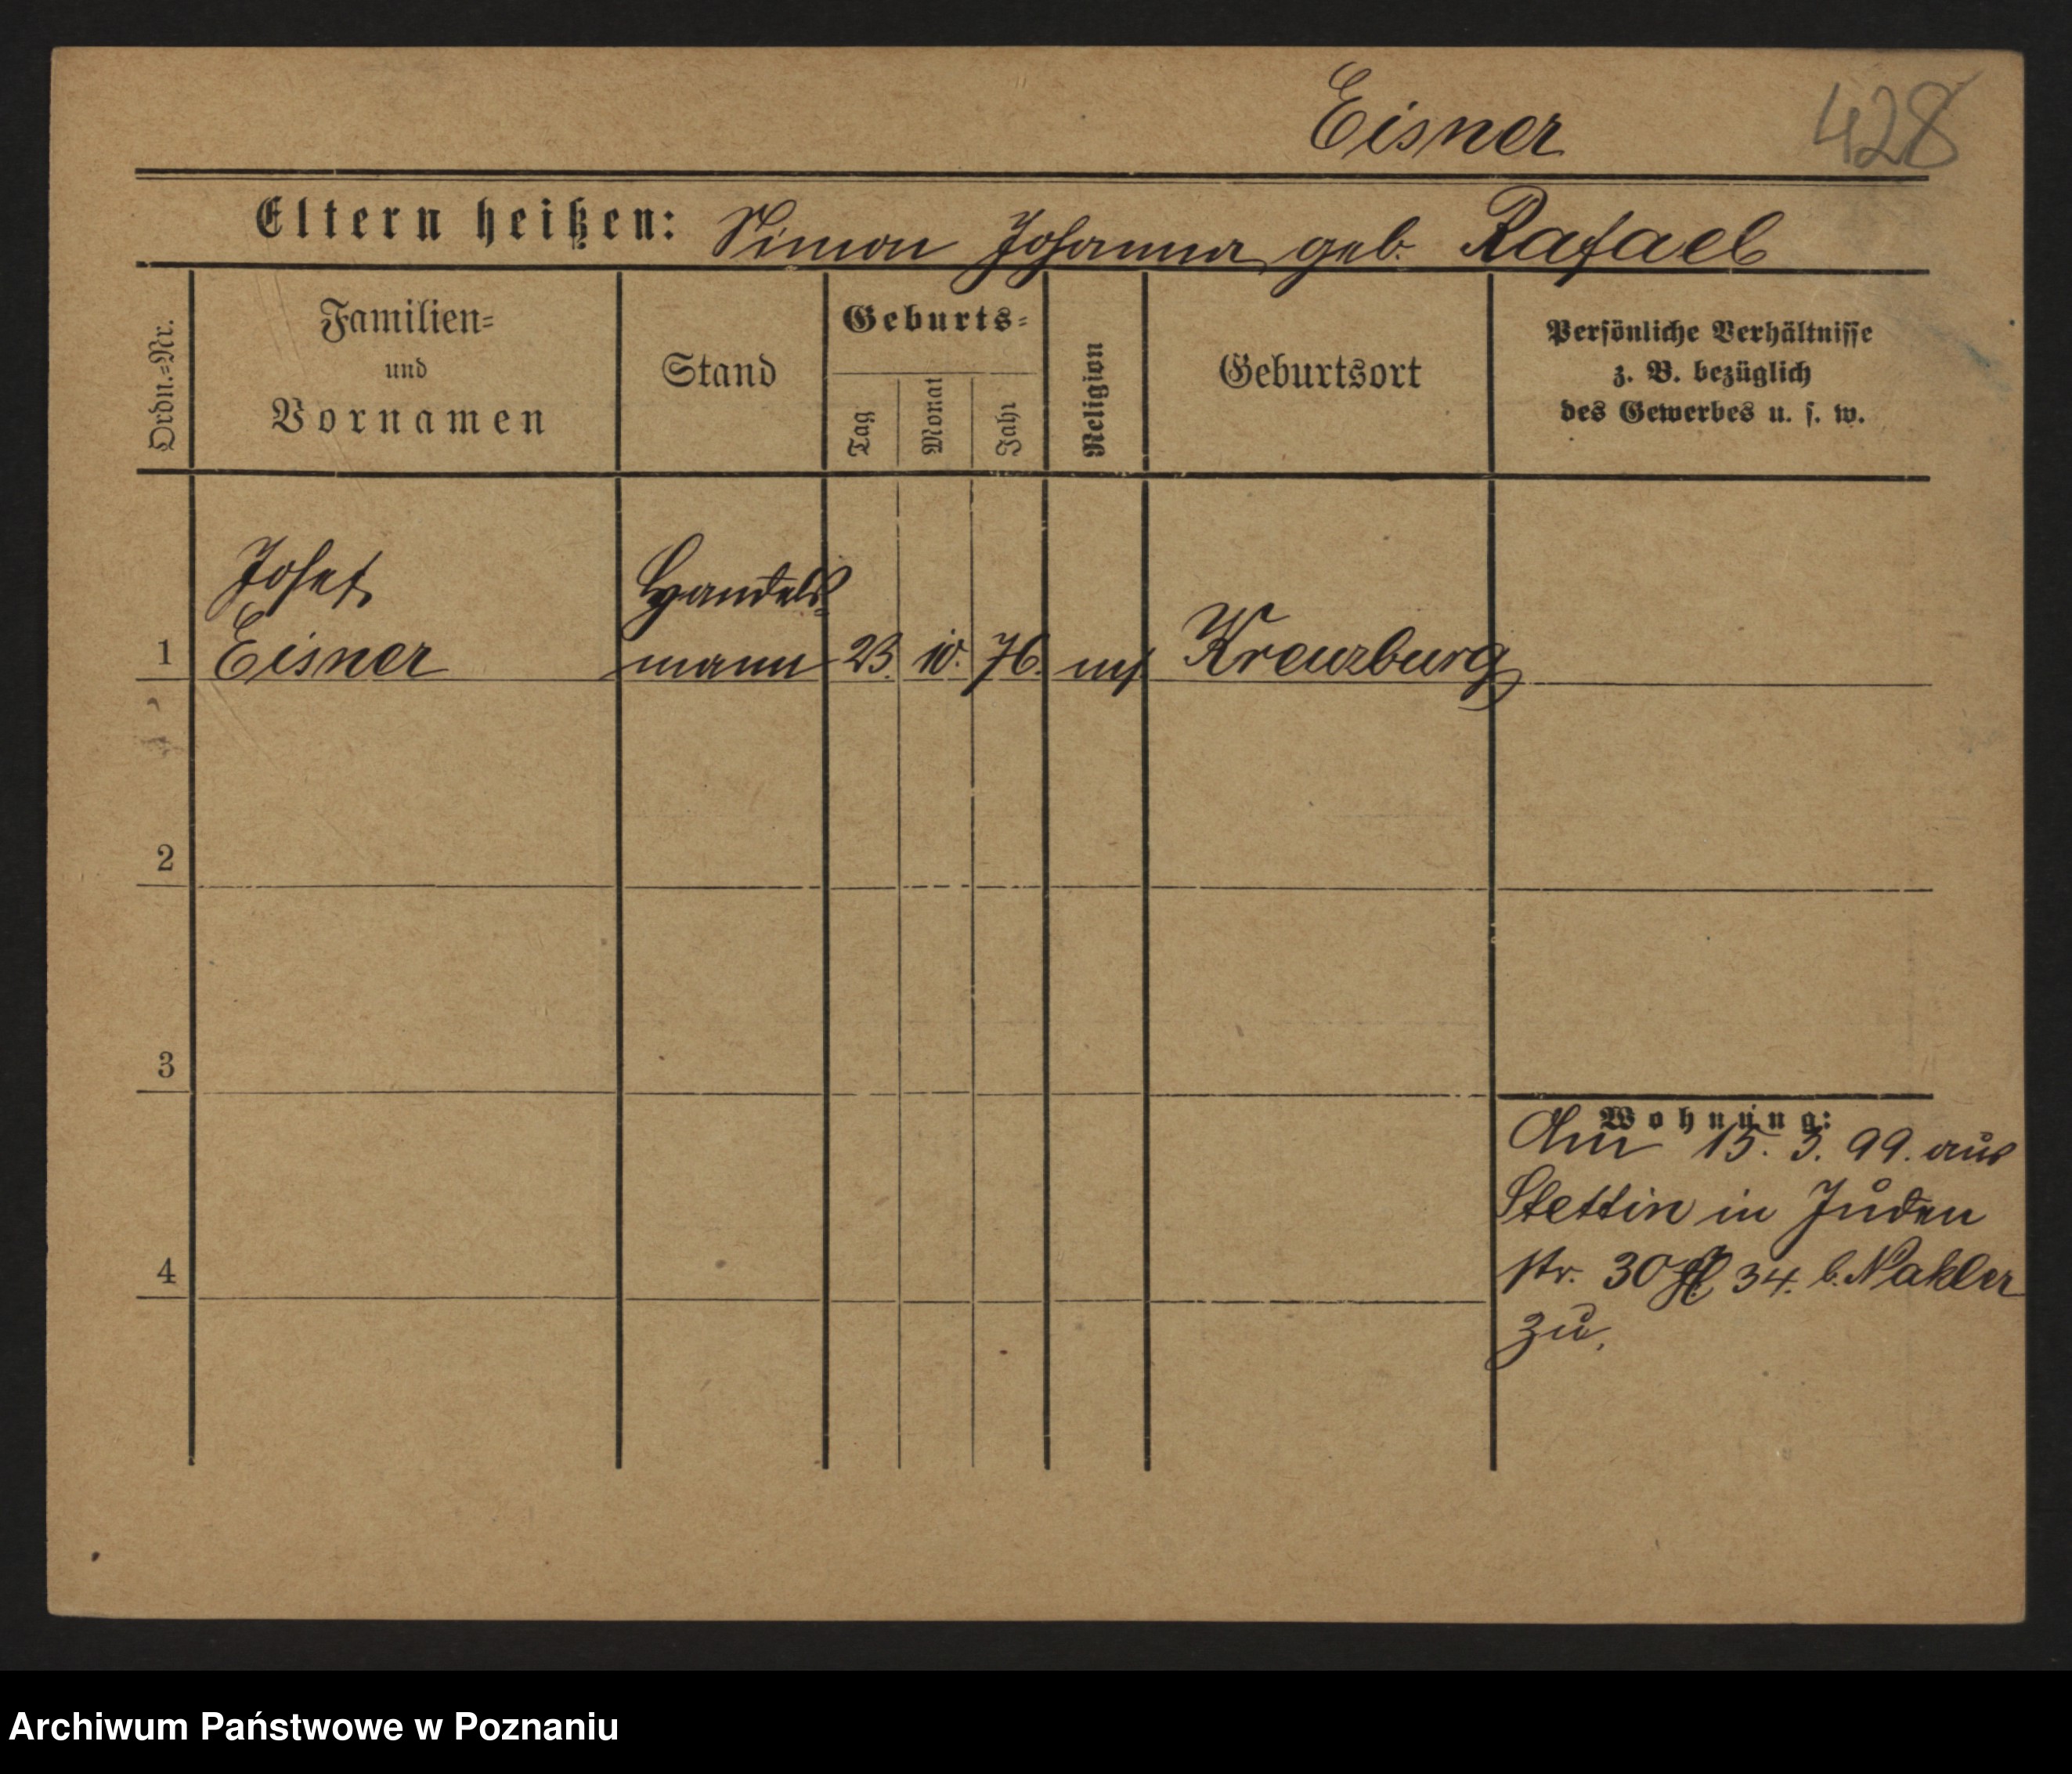 Eisner
428
Eltern heißen: Simon Johanna geb. Rafael
Ordn.=Nr.
Familien=
und
Vornamen
Stand
Geburts=
Tag
Monat
Jahr
Religion
Geburtsort
Persönliche Verhältnisse
z. B. bezüglich
des Gewerbes u. s. w.
1
Josef
Eisner
Handels
mann
23. 10. 76.
Kreuzburg
2
3
4
Wohnung:
Am 15. 3. 99. aus
Stettin in Juden
str. 30 34. b. Nakler
zu.
Archiwum Państwowe w Poznaniu